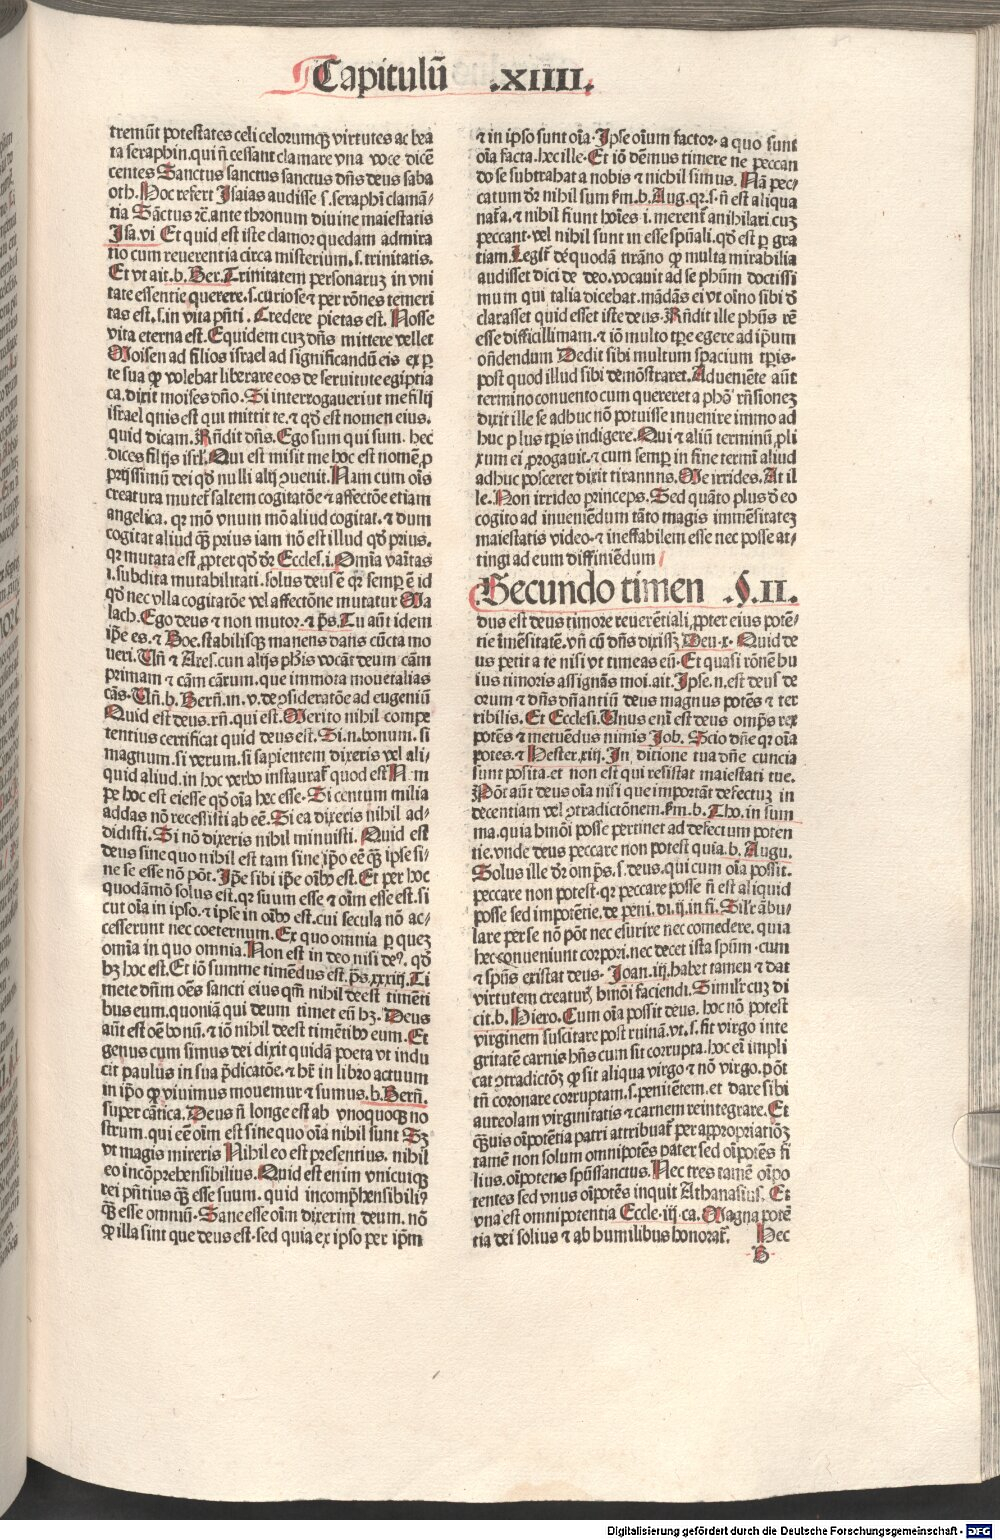 Capitulū .XIIII.
tremūt potestates celi celorumqȝ virtutes ac bea
ta seraphin. qui n̄ cessant clamare vna voce dicē
centes Sanctus sanctus sanctus dn̄s deus saba
oth. Hoc refert Isaias audisse .s. seraphī clamā-
tia Sāctus ⁊c̄. ante thronum diuine maiestatis
Isa. vi Et quid est iste clamor quedam admira
tio cum reuerentia circa misterium .s. trinitatis.
Et vt ait .b. Ber. Trinitatem personaruȝ in vni
tate essentie querere .s. curiose ⁊ per rōnes temeri
tas est .s. in vita pn̄ti. Credere pietas est. Nosse
vita eterna est. Equidem cuȝ dn̄s mittere vellet
Moisen ad filios israel ad significandū eis ex ꝑ
te sua ꝙ volebat liberare eos de seruitute egiptia
ca. dixit moises dn̄o. Si interrogauerīt me filij
israel qnis est qui mittit te. ⁊ qd̄ est nomen eius.
quid dicam. Rn̄dit dn̄s. Ego sum qui sum. hec
dices filijs isrl̄. Qui est misit me hoc est nomē ꝓ
prijssimū dei qd̄ nulli alij ↄuenit. Nam cum oīs
creatura mutet᷑ saltem cogitatōe ⁊ affectōe etiam
angelica. qꝛ mō vnum mō aliud cogitat. ⁊ dum
cogitat aliud qȝ̄ prius iam nō est illud qd̄ prius.
qꝛ mutata est ꝓpter qd̄ dꝛ̄ Eccles. i. Omīa vāitas
.i. subdita mutabilitati. solus deus ē qꝛ semꝑ ē id
qd̄ nec vlla cogitatōe vel affectōne mutatur Ma
lach. Ego deus ⁊ non mutor. ⁊ ps̄. Tu aūt idem
ip̄e es. ⁊ Boe. stabilisqȝ manens dans cūcta mo
ueri. Un̄ ⁊ Ares. cun alijs ph̄is vocāt deum cām
primam ⁊ cām cārum. que immota mouet alias
cās. Un̄ .b. Bern̄. in .v. de ↄsideratōe ad eugeniū
Quid est deus. rn̄. qui est. Merito nihil compe
tentius certificat quid deus est. Si .n. bonum. si
magnum. si verum. si sapientem dixeris vel ali-
quid aliud. in hoc verbo instaurat᷑ quod est N m
pe hoc est ei esse qd̄ oīa hec esse. Si centum milia
addas nō recessisti ab eē. Si ea dixeris nihil ad-
didisti. Si nō dixeris nihil minuisti. Quid est
deus sine quo nihil est tam sine ip̄o eē qȝ̄ ipse si-
ne se esse nō pōt. Ip̄e sibi ip̄e oībꝰ est. Et per hoc
quodāmō solus est. qꝛ suum esse ⁊ oīm esse est. si
cut oīa in ipso. ⁊ ipse in oībꝰ est. cui secula nō ac-
cesserunt nec coeternum. Ex quo omnia ꝑ queȝ
omīa in quo omnia. Non est in deo nisi deꝰ. qd̄
hȝ hoc est. Et iō summe timēdus est. ps̄. xxxiij. Ti
mete dn̄m oēs sancti eius qm̄ nihil deest timēti
bus eum. quoniā qui deum timet eū hȝ. Deus
aūt est oē bonū. ⁊ iō nihil deest timētibꝰ eum. Et
genus cum simus dei dixit quidā poeta vt indu
cit paulus in sua p̄dicatōe. ⁊ hr̄ in libro actuum
in ip̄o ꝙ viuimus mouemur ⁊ sumus. b. Bern̄.
super cātica. Deus n̄ longe est ab vnoquoqȝ no
strum. qui eē oīm est sine quo oīa nihil sunt Sȝ
vt magis mireris Nihil eo est presentius. nihil
eo incōprehensibilius. Quid est enim vnicuiqȝ
rei pn̄tius qȝ̄ esse suum. quid incomp̄hensibiliꝰ
qȝ̄ esse omniū. Sane esse oīm dixerim deum. nō
ꝙ illa sint que deus est. sed quia ex ipso per ip̄m
⁊ in ipso sunt oīa. Ipse oīum factor. a quo sunt
oīa facta. hec ille. Et iō dēmus timere ne peccan
do se subtrahat a nobis ⁊ nichil simus. Nā pec-
catum dꝛ̄ nihil sum fm̄ .b. Aug. qꝛ .s. n̄ est aliqua
nat᷑a. ⁊ nihil fiunt hoīes .i. merent᷑ anihilari cuȝ
peccant. vel nihil sunt in esse spūali. qd̄ est ꝑ gra
tiam. Legit᷑ de quodā tirāno ꝙ multa mirabilia
audisset dici de deo. vocauit ad se ph̄um doctissi
mum qui talia dicebat. mādās ei vt oīno sibi d̄
clarasset quid esset iste deus. Rn̄dit ille ph̄us rē
esse difficillimam. ⁊ iō multo tp̄e egere ad ip̄um
on̄dendum Dedit sibi multum spacium tp̄is.
post quod illud sibi demōstraret. Adueniēte aūt
termino conuento cum quereret a ph̄o rn̄sioneȝ
dixit ille se adhuc nō potuisse inuenire immo ad
huc plus tp̄is indigere. Qui ⁊ aliū terminū ꝓli
xum ei ꝓrogauit. ⁊ cum semꝑ in fine termī aliud
adhuc posceret dixit tirannns. Me irrides. At il
le. Non irrideo princeps. Sed quāto plus d̄ eo
cogito ad inueniēdum tāto magis immēsitateȝ
maiestatis video. ⁊ ineffabilem esse nec posse at-
tingi ad eum diffiniēdum
Secundo timen .§.II.
dus est deus timore reuerētiali ꝓpter eius potē-
tie īmēsitatē. vn̄ cū dn̄s dixissȝ Deu. x. Quid de
us petit a te nisi vt timeas eū. Et quasi rōnē hu
ius timoris assignās moi. ait. Ipse .n. est deus de
orum ⁊ dn̄s dn̄antiū deus magnus potēs ⁊ ter
ribilis. Et Ecclesi. Unus eni est deus omp̄s rex
potēs ⁊ metuēdus nimis Job. Scio dn̄e qꝛ oīa
potes. ⁊ Hester. xiij. In ditione tua dn̄e cuncia
sunt posita. et non est qui resistat maiestati tue.
Pōt aūt deus oīa nisi que importāt defectuȝ in
decentiam vel ↄtradictōnem. fm̄ .b. Tho. in sum
ma. quia hmōi posse pertinet ad defectum poten
tie. vnde deus peccare non potest quia .b. Augu.
Solus ille dꝛ̄ omp̄s .s. deus. qui cum oīa possit.
peccare non potest. qꝛ peccare posse n̄ est aliquid
posse sed impotētie. de peni. di. ij. in fi. Silr̄ ābu-
lare per se nō pōt nec esurire nec comedere. quia
hec ↄueniunt corpori. nec decet ista spūm. cum
⁊ spūs existat deus. Joan. iij. habet tamen ⁊ dat
virtutem creaturȩ hmōi faciendi. Similr̄ cuȝ di
cit .b. Hiero. Cum oīa possit deus. hoc nō potest
virginem suscitare post ruinā. vt .s. sit virgo inte
gritatē carnis hn̄s cum sit corrupta. hoc ei impli
cat ↄtradictōȝ ꝙ sit aliqua virgo ⁊ nō virgo. pōt
tn̄ coronare corruptam .s. penitētem. et dare sibi
aureolam virginitatis ⁊ carnem reintegrare. Et
qȝ̄uis oīpotētia patri attribuat᷑ per appropriatiōȝ
tamē non solum omnipotēs pater sed oīpotēs fi
lius. oīpotens spūssanctus. Nec tres tamē oīpo
tentes sed vnus oīpotēs inquit Athanasius. Et
vna est omnipotentia Eccle. iij. ca. Magna potē
tia dei solius ⁊ ab humilibus honorat᷑. Nec
B
Digitalisierung gefördert durch die Deutsche Forschungsgemeinschaft - DFG